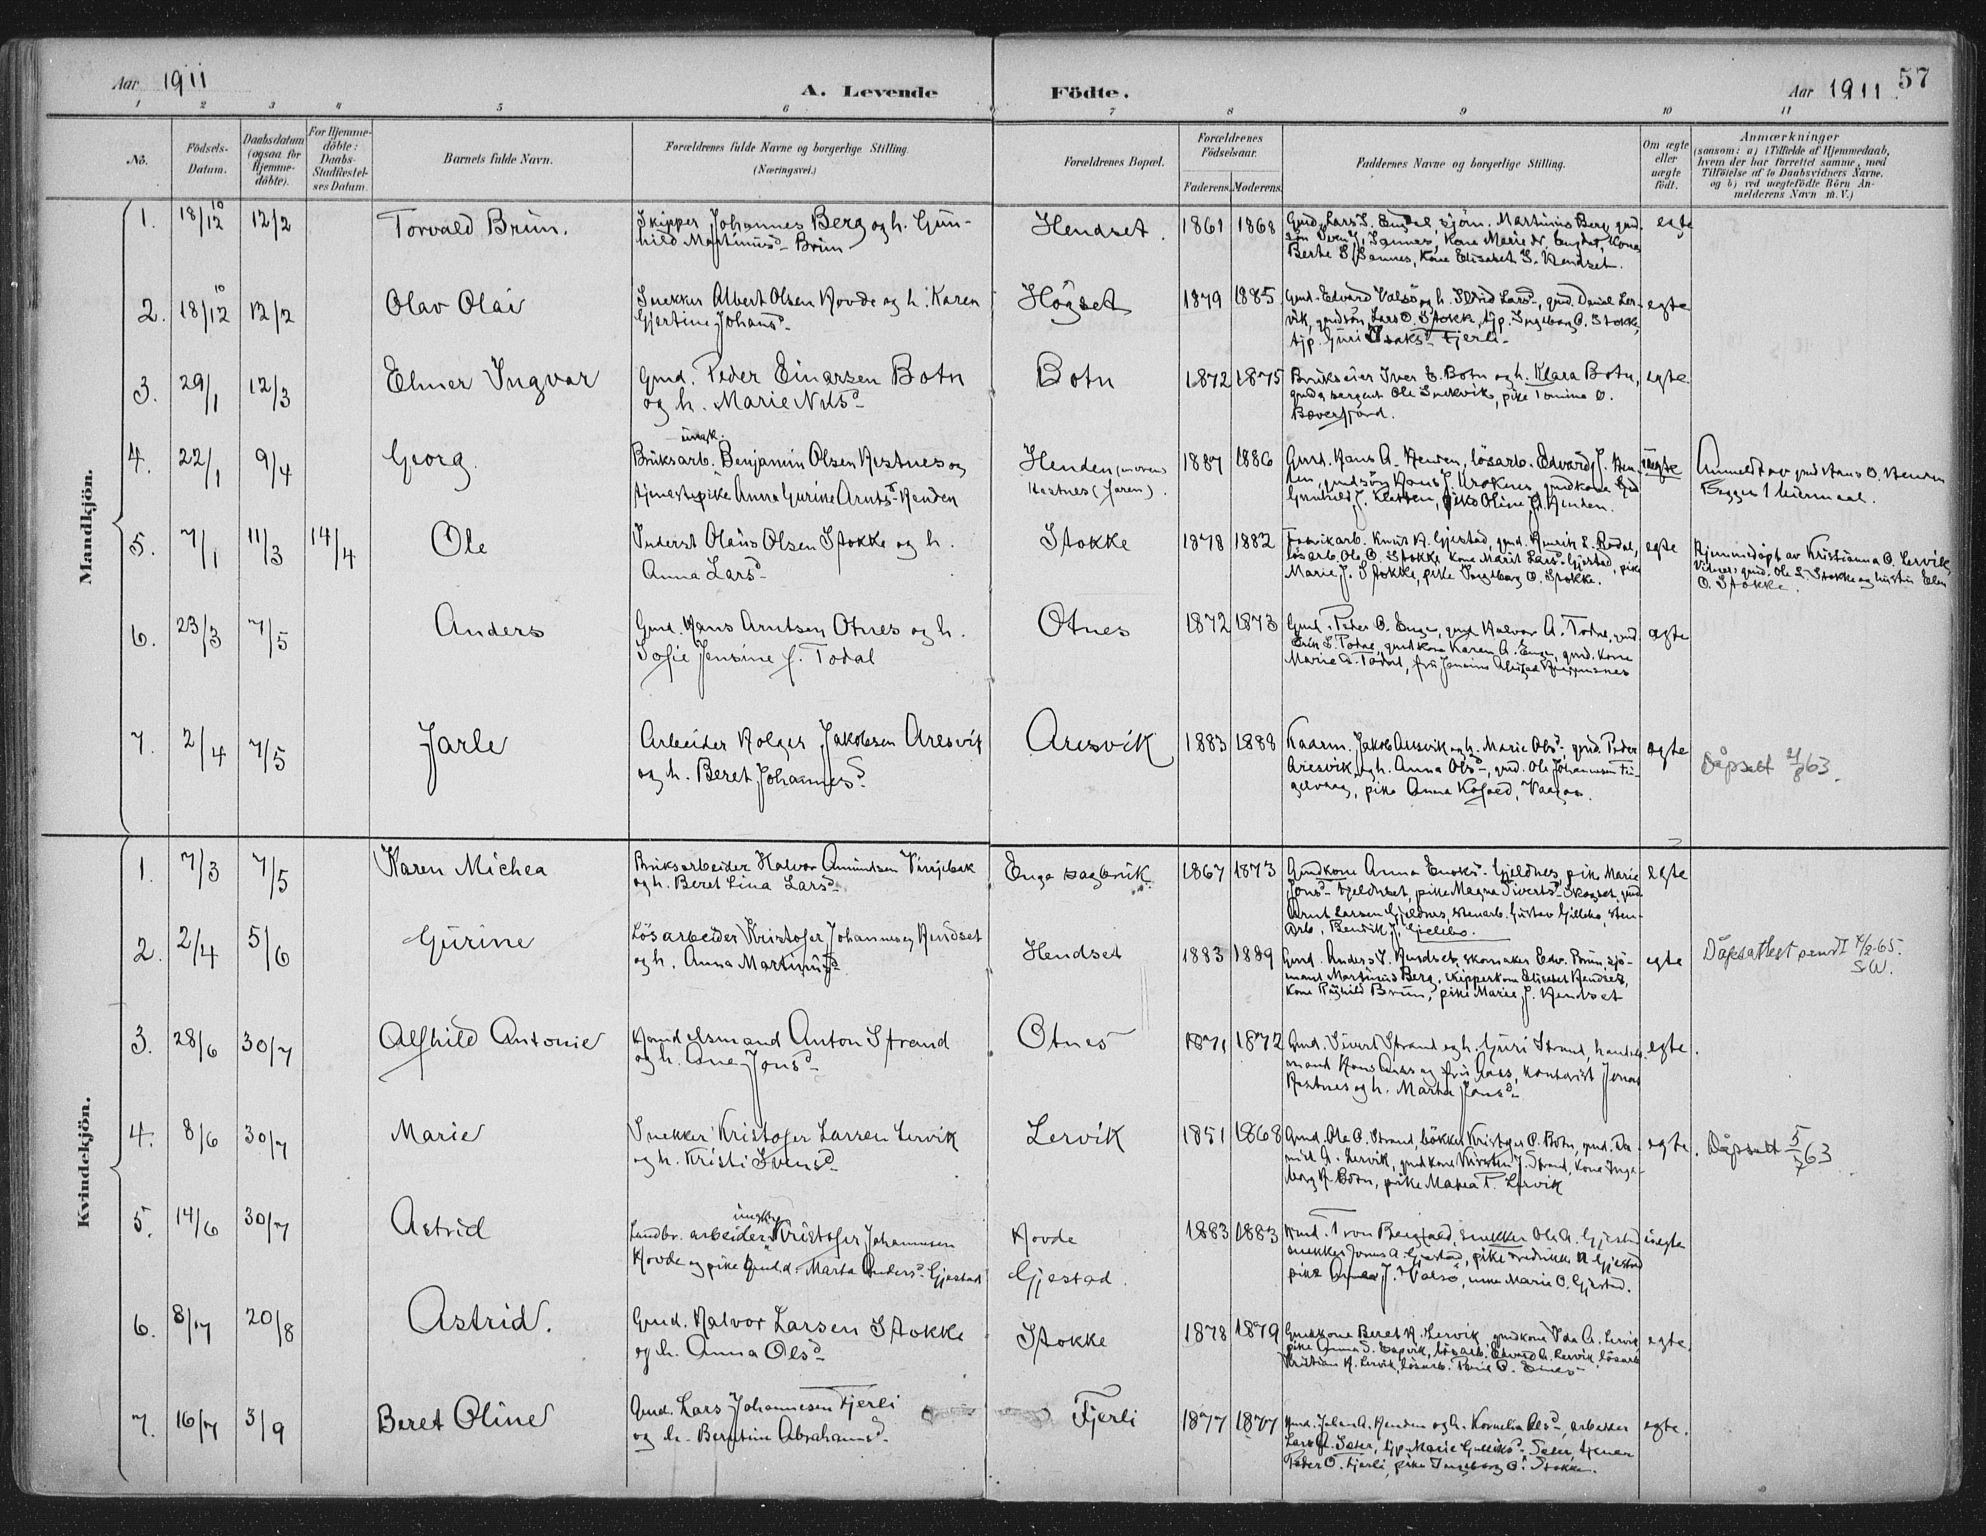 Aar 1911
A. Levende Födte.
Aar 1911.
57
1 2 3 4 5 6 7 8 9 10 11
No.
Födsels-Datum.
Daabsdatum (ogsaa for Hjemme-döbte).
For Hjemme-döbte: Daabs-Stadfæstel-ses Datum.
Barnets fulde Navn.
Forældrenes fulde Navne og borgerlige Stilling. (Næringsvei.)
Forældrenes Bopæl.
Forældrenes Födselsaar.
Faderens. Moderens.
Faddernes Navne og borgerlige Stilling.
Om ægte eller uægte födt.
Anmærkninger
(saasom: a) i Tilfælde af Hjemmedaab, hvem der har forrettet samme, med Tilföielse af to Daabsvidners Navne, og b) ved uægtefödte Börn Anmelderens Navn m. V.)
Mandkjön.
1. 18/12 10 12/2 Torvald Brun.
Skipper Johannes Berg og h. Gun-
hild Martinusd. Brun
Hendset. 1861 1868
Gmd. Lars S. Engdal, sjöm. Martinus Berg, gmd.
Berte S. Sannes, kone Elisabet S. Hendset.
egte
2. 18/12 10 12/2 Olav Olai
Snekker Albert Olsen Hovde og h. Karen
Gjertine Johansd.
Högset 1879 1885
Gmd. Edvard Valsö og h. Sigrid Larsd., gmd. Daniel Ler-
vik, gmdsön Lars O. Stokke, tjp. Ingeborg O. Stokke,
tjp. Guri Isaksd. Fjerli.
egte
3. 29/1 12/3 Elmer Ingvar
Gmd. Peder Einarsen Botn
og h. Marie Nilsd.
Botn 1872 1875
Brukseier Iver E. Botn og h. Klara Botn,
sergent Ole Surkvik, pike Tomine O.
Bæverfjord.
egte.
4. 22/1 9/4 Georg.
ungk.
Bruksarb. Benjamin Olsen Hestnes og
tjenestepike Anna Gurine Arntsd. Henden
Henden (moren)
Hestnes (faren).
1887 1886
Gmd. Hans A. Henden, lösarb. Edvard J. Hen-
den, gmdsön Hans J. Kroknes, gmdkone
Gunhild J. Kletten, pike Oline J. Henden.
uegte
Anmeldt av gmd Hans O. Henden
Begges 1 leiermaal.
5. 7/1 11/3 14/4 Ole
Inderst Olaus Olsen Stokke og h.
Anna Larsd.
Stokke 1878 1882
Fabrikarb. Knut A. Gjestad, gmd. Henrik E. Rödal,
lösarb. Ole O. Stokke, kone Marit Larsd. Gjestad, pike
Marie J. Stokke, pike Ingeborg O. Stokke.
egte
Hjemmedöpt av Kristianna O. Lervik,
Vidner: gmd. Ole L. Stokke og hustru Elen
O. Stokke.
6. 23/3 7/5 Anders
Gmd. Hans Arntsen Otnes og h.
Sofie Jensine f. Todal
Otnes 1872 1873
Gmd. Peter O. Enge, gmd. Halvor A. Todal, gmd.
Erik L. Todal, gmdkone Karen A. Enge, gmd. kone
egte
7. 2/4 7/5 Jarle
Arbeider Holger Jakobsen Aresvik
og h. Beret Johannesd.
Aresvik 1883 1888
Kaarm. Jakob Aresvik og h. Marie Olsd., gmd. Peder
Aresvik og h. Anna Olsd., gmd. Ole Johannesen
pike Anna Kofoed, Vaagos.
egte
Dåpsatt 21/8 63.
Kvindekjön.
1. 7/3 7/5 Karen Michea
Bruksarbeider Halvor Amundsen Virrjebak
og h. Beret Lina Larsd.
Enge sagbruk 1867 1873
Gmdkone Anna Enoksd. Gjeldnes, pike Marie
Jonsd. Gjeldnes, pike Magna Sivertsd. Skogset, gmd.
Arnt Larsen Gjeldnes, stenarb. Gustav Gilleko, sten-
arb. Benrik J.
egte
2. 2/4 5/6 Gurine
Lösarbeider Kristofer Johannesen Hendset
og h. Anna Martinusd.
Hendset 1883 1889
Gmd. Anders J. Hendset, skomaker Edv. Brun, sjö-
mand Martinus Berg, skipperkone Elisabet Hendset,
kone Raghild Brun, pike Marie J. Hendset
egte
Dåpsattest sendt 4/2-65.
S.W.
3. 28/6 30/7 Alfhild Antonie
Handelsmand Anton Strand
og h. Ane Jonsd.
Otnes 1871 1872
Gmd. Sivert Strand og h. Guri Strand, handels-
mand Hans Aass og fru Aass, kontorist Jonas
Hestnes og h. Marta Jonsd.
egte.
4. 8/6 30/7 Marie
Snekker Kristofer Larsen Lervik
og h. Kristi Svensd.
Lervik 1851 1868
Gmd. Ole O. Strand, bökker Kristofer O. Botn, gmd. Da-
niel A. Lervik, gmdkone Kirsten J. Strand, kone Inge-
borg K. Botn, pike Matea T. Lervik
egte.
Dåpsatt 5/7 63
5. 14/6 30/7 Astrid
ungk.
Landbr. arbeider Kristofer Johannesen
Hovde og pike Marta Andersd. Gjestad
Hovde
Gjestad.
1883 1883
snekker Ole A. Gjestad
snekker Jonas A. Gjestad, pike Fredrikke A. Gjestad
pike Anna J. Valsö, Marie O. Gjestad.
uegte
6. 8/7 20/8 Astrid.
Gmd. Halvor Larsen Stokke
og h. Anna Olsd.
Stokke 1878 1879
Gmdkone Beret H. Lervik, gmdkone Ida A. Lervik
pike Anna S. Lervik, lösarb. Edvard A. Lervik, lösarb.
Kristian H. Lervik, lösarb.
egte.
7. 16/7 3/9 Beret Oline
Gmd. Lars Johannesen Fjerli
og h. Berntine Abrahamsd.
Fjerli 1877 1877
Gmd. Johan A. Henden og h. Kornelia Olsd., arbeider
Lars A. Seter, tjp. Marie Gulliksd. Seter, tjener
Peder O. Fjerli, pike Ingeborg O. Stokke.
egte.